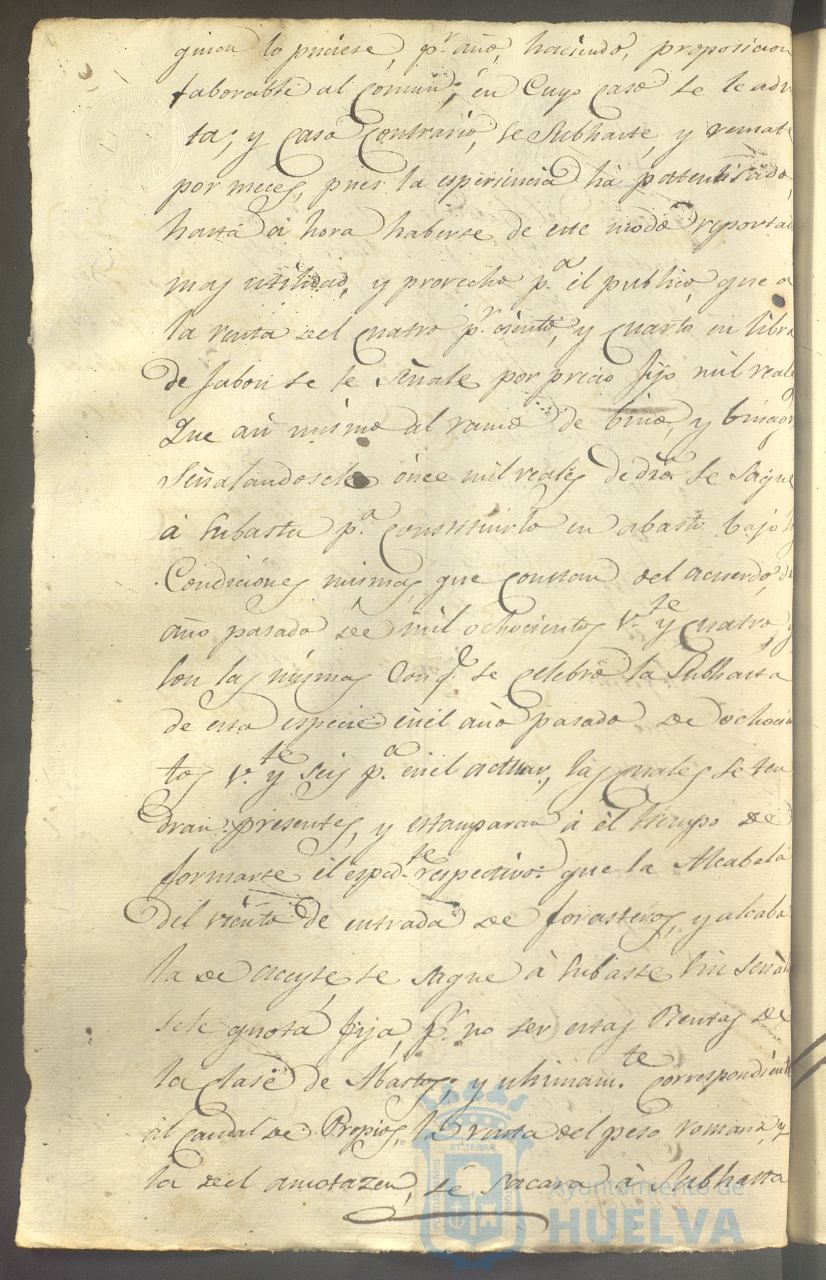 guien lo puciese, p.r año, haciendo, proposicion
faborable al comun; en Cuyo Caso se le adm
ta, y Caso Contrario, se Subhaste, y remat
por meces, pues la esperiencia há patentisado,
hasta á hora haberse de este modo reportad
mas utilidad, y provecho p.a el publico, que á
la renta del Cuatro p.r ciento, y Cuarto en libra
de Jabon se le señale por precio fijo mil reale
Que asi mismo al ramo de bino, y binagr
Señalandosele once mil reales de dro se saque
á Subasta p.a Constituirlo en abasto bajo l
Condiciones mismas, que Constan del acuerdo, de
año pasado de mil ochocientos v.te y Cuatro, y
Con las mismas Con q.e se Celebró la Subhasta
de esta especie en el año pasado de ochocien
tos v.te y Seis p.a en el actual, las quales se ten
dran presentes, y estamparan á él tiempo de
formarse el esped.te respectivo: que la Alcabala
del viento de entrada de forasteros, y alcaba
la de aceyte, se saque á Subasta Sin señala
sele quota fija, p.r no ser estas Rentas de
la Clase de Abastos; y ultimam.te Correspondiente
al Caudal de Propios, la renta del peso romana, y
la del amotazen, se sacara á Subhasta
Ayuntamiento de
HUELVA